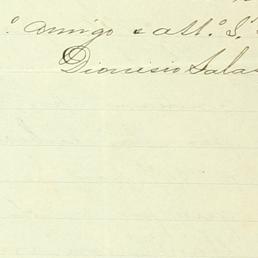 º amigo e att.º S.
Dionisio Sala